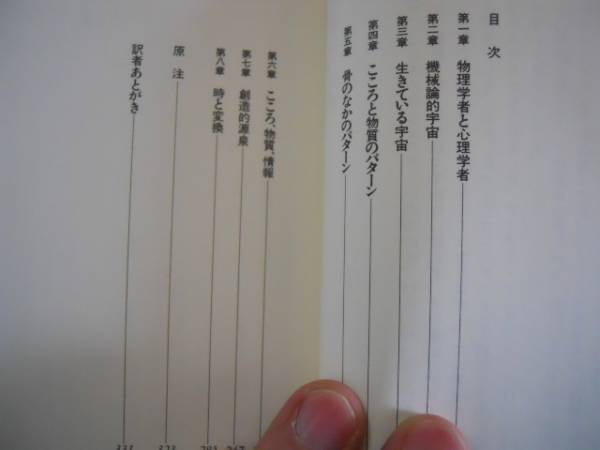 目次
第一章 物理学者と心理学者
第二章 機械論的宇宙
第三章 生きている宇宙
第四章 こころと物質のパターン
第五章 骨のなかのパターン
第六章 こころ、物質、情報
第七章 創造的源泉
第八章 時と変換
原注
訳者あとがき